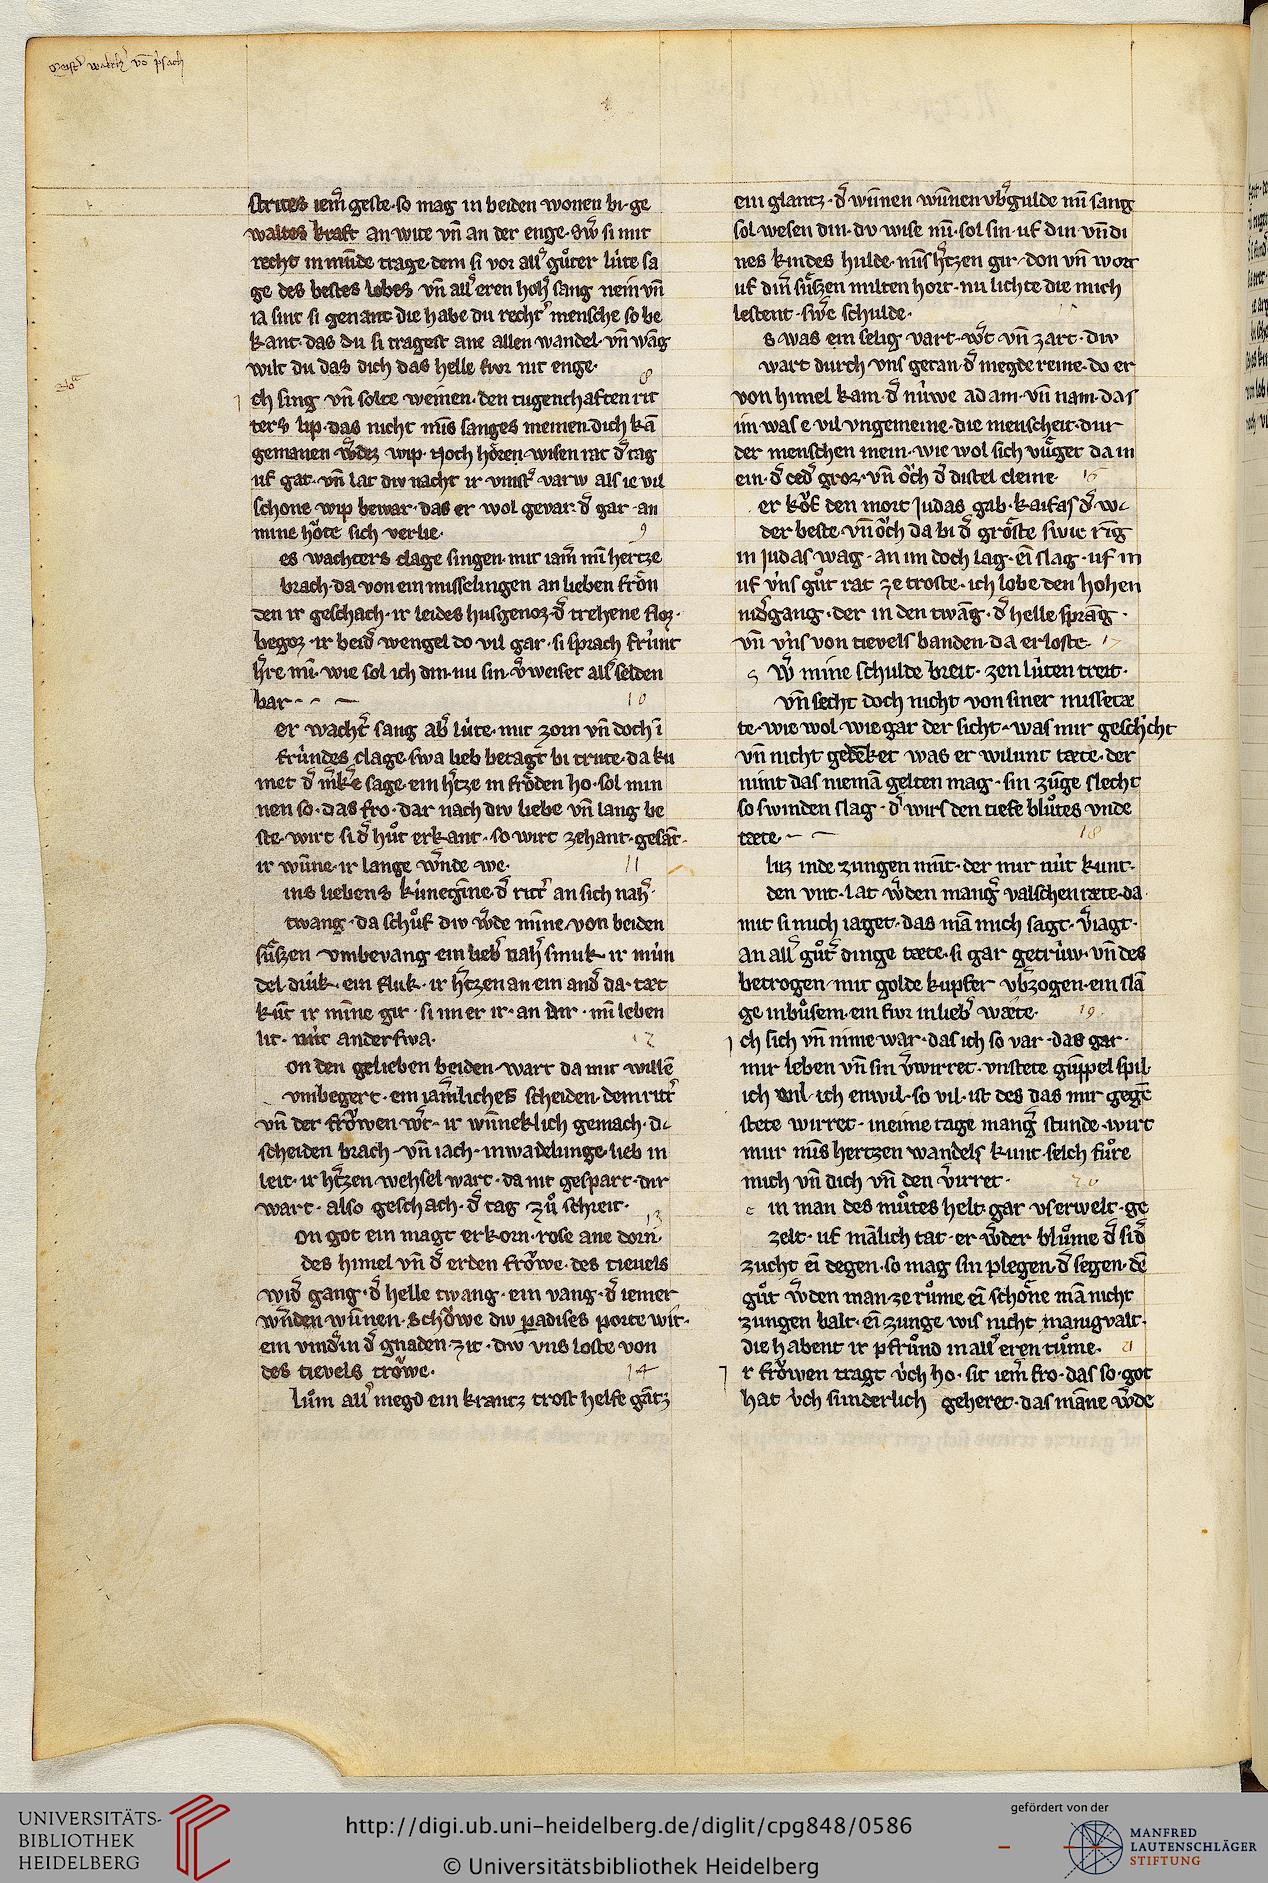 Meist᷑ walth᷑ vō p᷑sach
strites iem̄ geste·so mag in beiden wonen bi·ge
waltes kraft an wite vn̄ an der enge·Sw᷑ si mit
recht in mūde trage·dem si vor all᷑ gůter lúte sa
ge des bestes lobes vn̄ all᷑ eren hoh᷑ sang nein vn̄
ia sint si genant die habe du recht᷑ mensche so be
kant·das du si tragest ane allen wandel·vn̄ wāg
wilt du das dich das helle fivr nit enge·
8
Noᵗᵃ
ch sing vn̄ solte weinen·den tugenthaften rit
ters lip·das nicht mīs sanges meinen·dich kā
gemanen w᷑dez wip·Noch hoͤren·wisen rat d᷑ tag
uf gat·vn̄ lat div nacht ir vinst᷑ varw als ie vil
schone wip bewar·das er wol gevar·d᷑ gar·an
mine hoͮte sich verlie·
9
es wachters clage singen·mir iam̄ mī hertze
brach·da von ein misselingen an lieben froͮn
den ir geschach·ir leides husgenoz·d᷑ trehene floz·
begoz·ir beid᷑ wengel do vil gar·si sprach frúnt
h᷑re mī·wie sol ich din·nu sin·v᷑weiset all᷑ selden
bar·-·-—
10
er wacht᷑ sang ab᷑ lúte·mit zorn vn̄ doch ī
frúndes clage·swa lieb betagt᷑ bi trute·da ku
met d᷑ m᷑k᷑e sage·ein h᷑tze in froͤden ho·sol min
nen so·das fro·dar nach div liebe vn̄ lang be
ste·wirt si d᷑ hůt erkant·so wirt zehant·gesāt·
ir wūne·ir lange w᷑nde we·
11
ins liebens kúnegīne·d᷑ ritt᷑ an sich nah᷑·
twang·da schůf div w᷑de mīne·von beiden
suͤszen vmbevang·ein lieb᷑ nah᷑ smuk·ir mún
del druk·ein fluk·ir h᷑tzen an ein and᷑ da·tæt
kūt ir mīne gir·si im er ir·an dir·mī leben
lit·nút anderswa·
12
on den gelieben beiden·wart da mit willē
vmbegert·em iam̄liches scheiden·dem ritt᷑
vn̄ der froͮwen w᷑t·ir wūneklich gemach·di
scheiden brach·vn̄ iach·inwadelunge·lieb in
leit·ir h᷑tzen wehsel wart·da mit gespart·dir
wart·also geschach·d᷑ tag zů schreit·
13
on got ein magt erkorn·rose ane dorn·
des himel vn̄ d᷑ erden froͮwe·des tievels
wid᷑ gang·d᷑ helle twang·ein vang·d᷑ iemer
w᷑nden wūnen·schoͮwe div p̲adises porte wit·
ein vind᷑in d᷑ gnaden·zit·div vns loste von
des tievels troͮwe·
14
lům all᷑ megd ein krantz trost helfe gātz
ein glantz·d᷑ wūnen wūnen vb᷑gulde mī sang
sol wesen din·div wise mī·sol sin·uf din vn̄ di
nes kindes hulde·mīs h᷑tzen gir·don vn̄ wort
uf din̄ suͤszen milten hort·nu lichte die mich
lestent·sw᷑e schulde·
s was ein selig vart·w᷑t vn̄ zart·div
wart durch vns getan·d᷑ megde reine·do er
von himel kam·d᷑ núwe adam·vn̄ nam·das
im was e vil vngemeine·die menscheit·dur
der menschen mein·wie wol sich vuͤget da in
ein·d᷑ ced᷑ groz·vn̄ oͮch d᷑ distel cleine·
15
er koͮf den mort Judas gab·kaifas d᷑ w
der beste·vn̄ oͮch da bi d᷑ groͤste swie rīg
in Judas wag·an im doch lag·eī slag·uf in
uf v́ns gůt rat ze troste·ich lobe den hohen
nid᷑gang·der in den twāg·d᷑ helle sprāg·
vn̄ v́ns von tievels banden·da erloste·
17
s w᷑ mine schulde breit·zen lúten treit·
vn̄ secht doch nicht von siner missetæ
te·wie wol wie gar der sicht·was mir geschicht
vn̄ nicht gedēket was er wilunt tæte·der
nimt das niemā gelten mag·sin zūge slecht
so swinden slag·d᷑ wirs den tiefe blůtes vnde
tæte·-·—
18
liz inde zungen mūt·der mir nút kunt·
den vnt·lat w᷑den mang᷑ valschen ræte·da
mit si nuch iaget·das mā mich sagt·v᷑iagt·
an all᷑ gůt᷑ dinge tæte·si gar getrúw·vn̄ des
betrogen·mit golde kupfer vb᷑zogen·ein slā
ge inbůsem·ein fivr inlieb᷑ wæte·
19
ch sich vn̄ nime war·das ich so var·das gar·
mir leben vn̄ sin v᷑wirret·vnstete gūppel spil·
ich wil·ich enwil·so vil·ist des das mir gegē
stete wirret·meime tage mang᷑ stunde·wirt
mur mīs hertzen wandels kunt·selch fůre
mich vn̄ dich vn̄ den v᷑irret·
20
e in man des můtes helt·gar vserwelt·ge
zelt·uf mālich tat·er w᷑der blůme d᷑ sid᷑
zucht eī degen·so mag sin plegen·d᷑ segen·dē
gůt w᷑den man·ze růme eī schoͤne mā nicht
zungen balt·eī zunge wis nicht manigvalt·
die habent ir pfrůnd in all᷑ eren tůme·
21
r froͮwen tragt v́ch ho·sit iem̄ fro·das so·got
hat v́ch sunderlich geheret·das māne w᷑de
UNIVERSITÄTS-
BIBLIOTHEK
HEIDELBERG
http://digi.ub.uni-heidelberg.de/diglit/cpg848/0586
© Universitätsbibliothek Heidelberg
gefördert von der
MANFRED
LAUTENSCHLÄGER
STIFTUNG